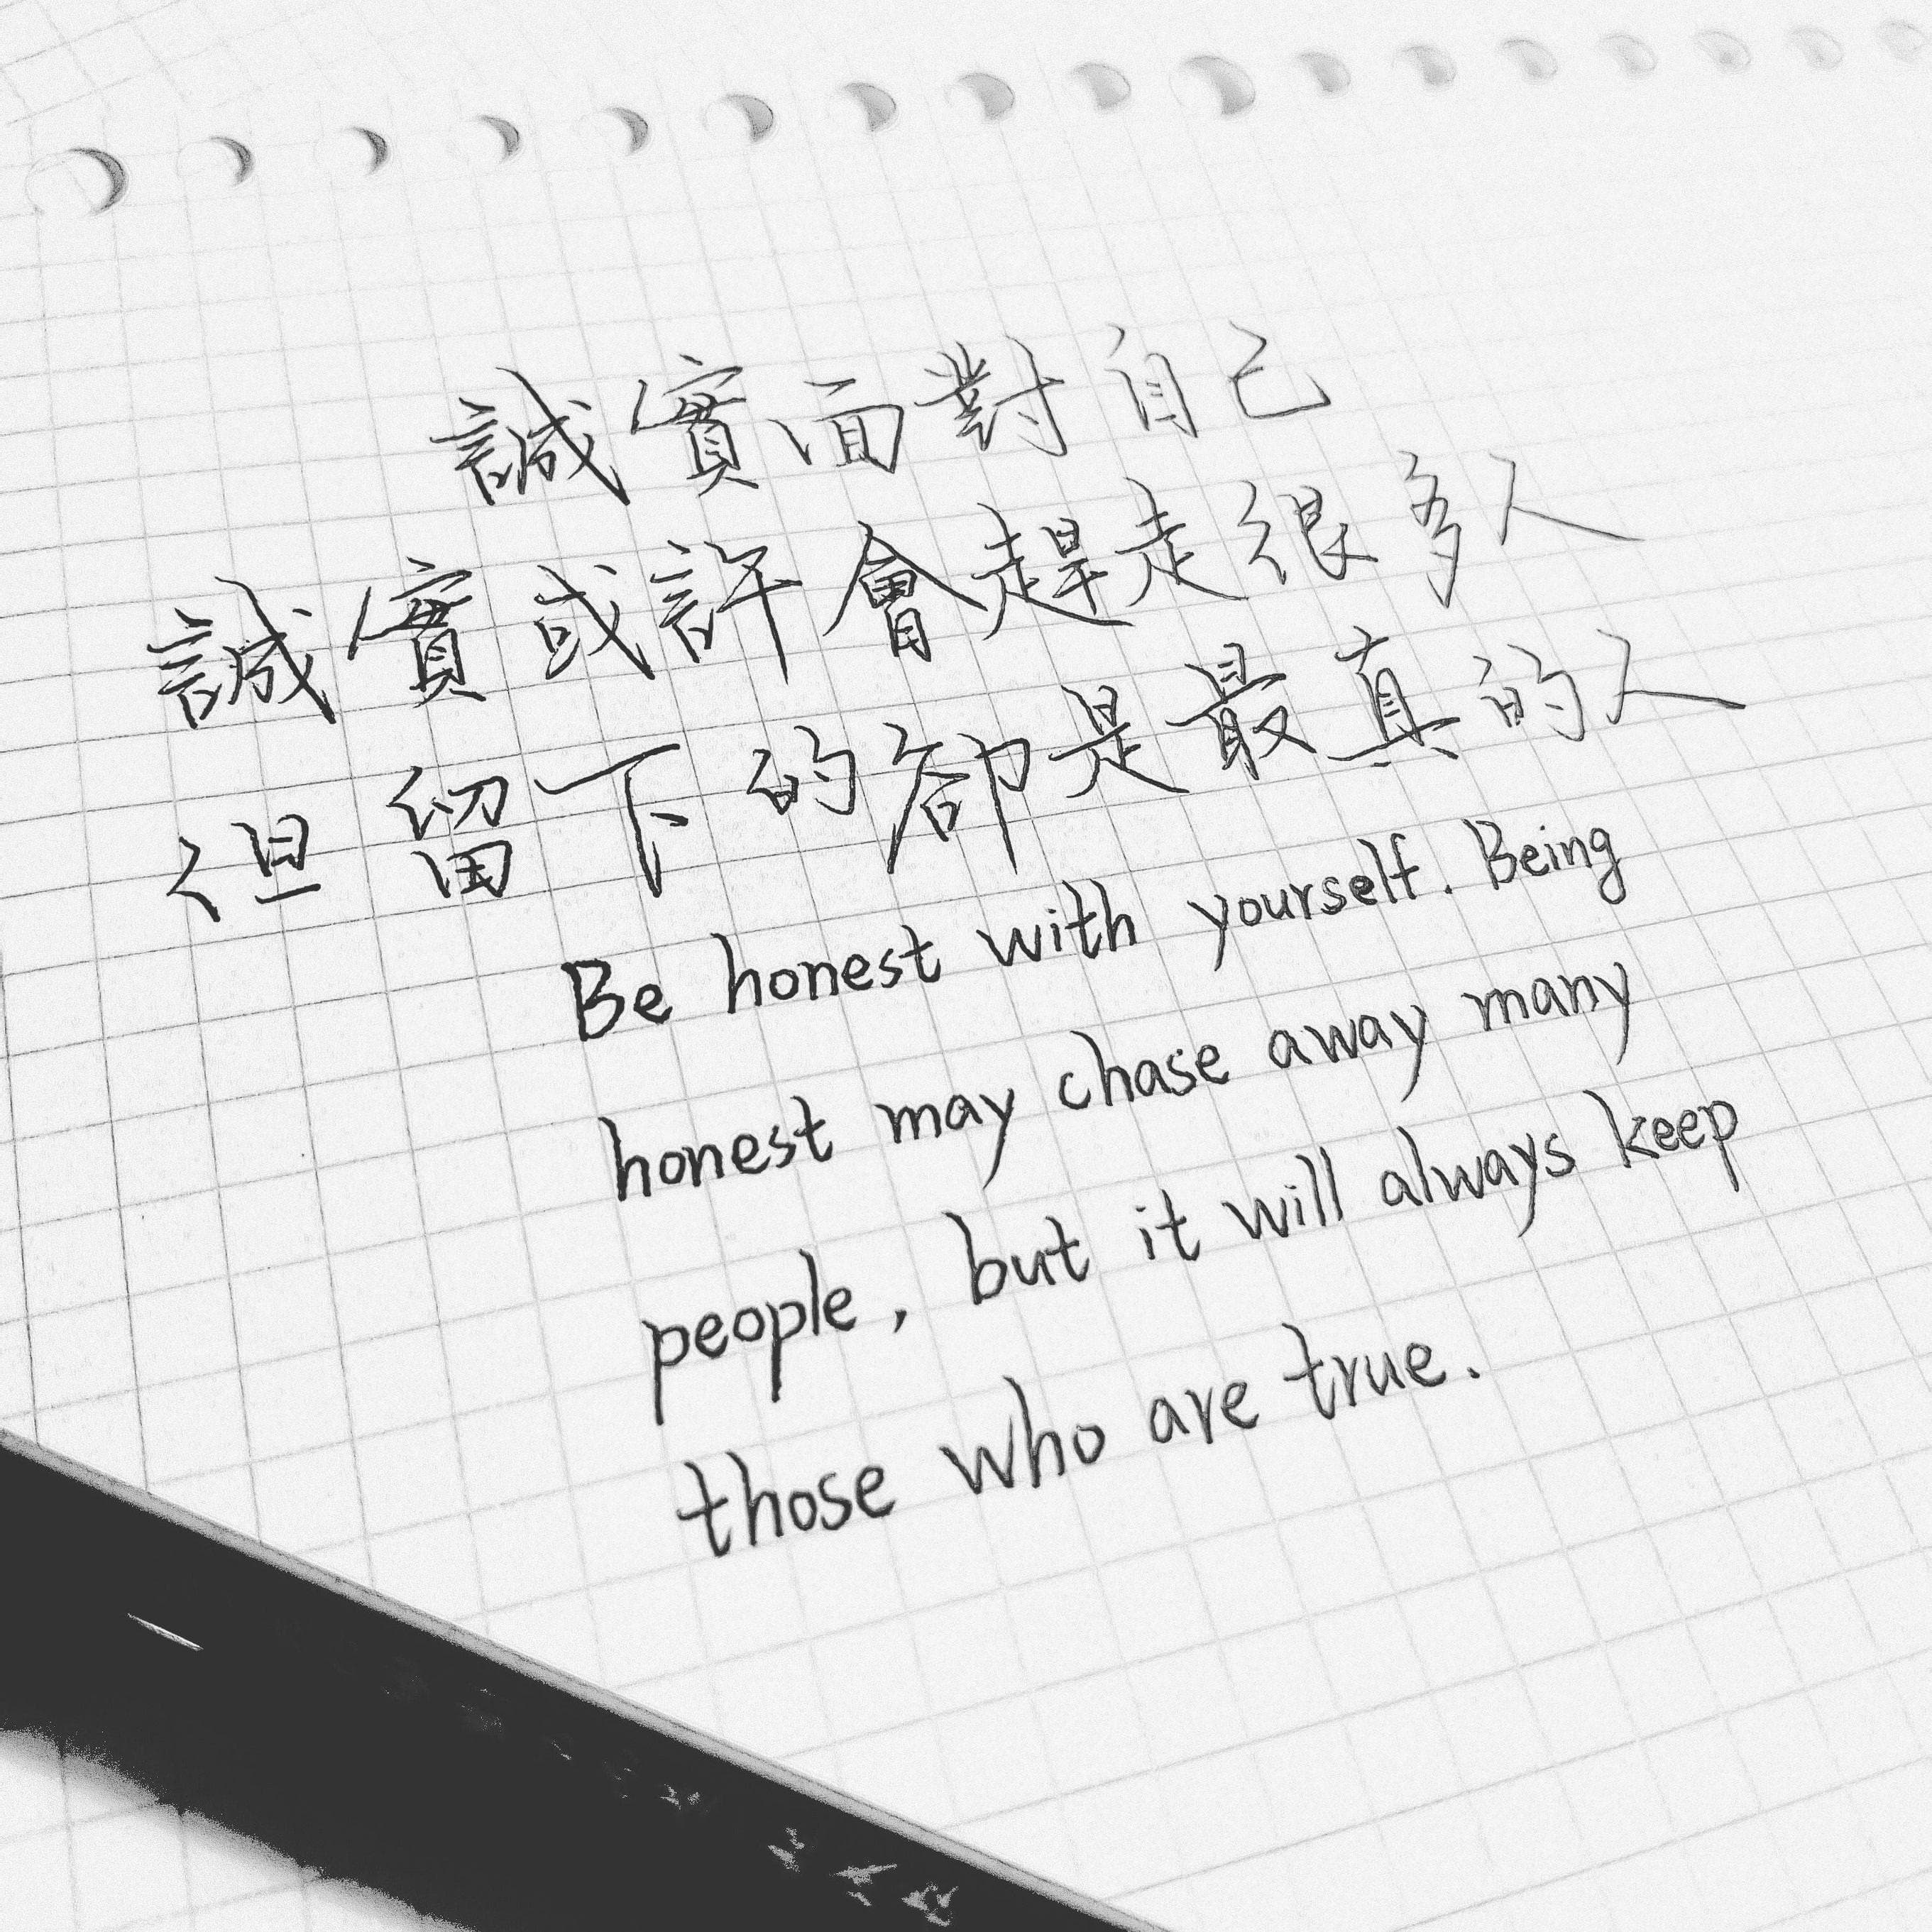 誠實面對自己
誠實或許會趕走很多人
但留下的卻是最真的人
Be honest with yourself. Being
honest may chase away many
people, but it will always keep
those who are true.